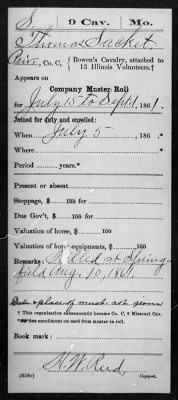 S | 9 Cav. | Mo.
Thomas Sacket,
Priv., Co. C, { Bowen's Cavalry, attached to
13 Illinois Volunteers.†
Appears on
Company Muster Roll
for July 15 to Sept 1, 1861.
Joined for duty and enrolled:
When July 5, 186 .*
Where
Period years.*
Present or absent
Stoppage, $ 100 for
Due Gov't, $ 100 for
Valuation of horse, $ 100
Valuation of horse equipments, $ 100
Remarks: Killed at Spring-
field Aug. 10, 1861.
Date & place of muster not given
† This organization subsequently became Co. C, 9 Missouri Cav.
* See enrollment card from muster-in roll.
Book mark:
H. W. Reed,
(858c) Copyist.